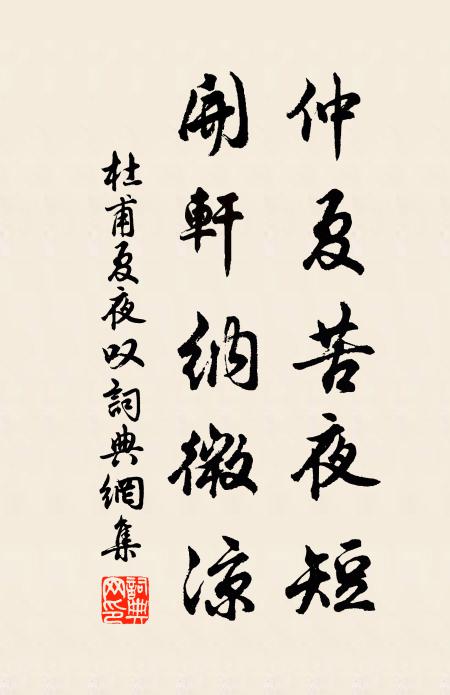 仲夏苦夜短
開軒納微涼
杜甫夏夜叹詞典網集
詞典网印